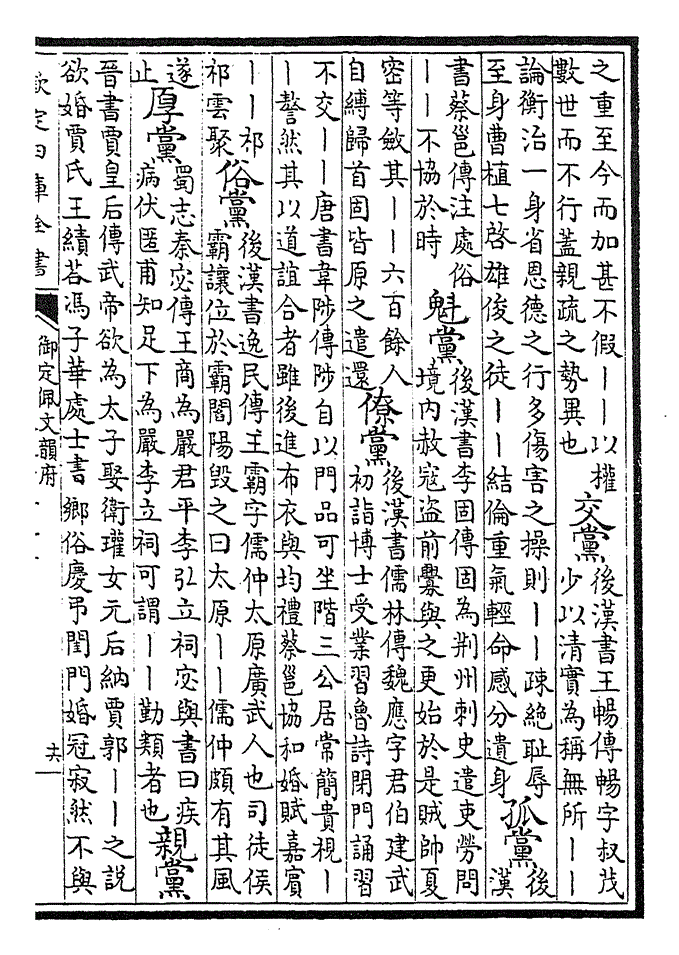 之重至今而加甚不假——以權
數世而不行蓋親疏之勢異也
交黨
後漢書王暢傳暢字叔茂
少以清實為稱無所——
論衡治一身省恩德之行多傷害之操則——疎絕耻辱
至身曹植七啓雄俊之徒——結倫重氣輕命感分遺身
孤黨
後
漢
書蔡邕傳注處俗
——不協於時
魁黨
後漢書李固傳固為荆州刺史遣吏勞問
境内赦寇盜前釁與之更始於是賊帥夏
密等斂其——六百餘人
自縛歸首固皆原之遣還
僚黨
後漢書儒林傳魏應字君伯建武
初詣博士受業習魯詩閉門誦習
不交——唐書韋陟傳陟自以門品可坐階三公居常簡貴視—
—謷然其以道誼合者雖後進布衣與均禮蔡邕協和婚賦嘉賓
——祁
祁雲聚
俗黨
後漢書逸民傳王霸字儒仲太原廣武人也司徒侯
霸讓位於霸閻陽毀之曰太原——儒仲頗有其風
遂
止
厚黨
蜀志秦宓傳王商為嚴君平李弘立祠宓與書曰疾
病伏匿甫知足下為嚴李立祠可謂——勤類者也
親黨
晉書賈皇后傳武帝欲為太子娶衛瓘女元后納賈郭——之說
欲婚賈氏王績荅馮子華處士書鄉俗慶弔閨門婚冠寂然不與
欽定四庫全書
御定佩文韻府